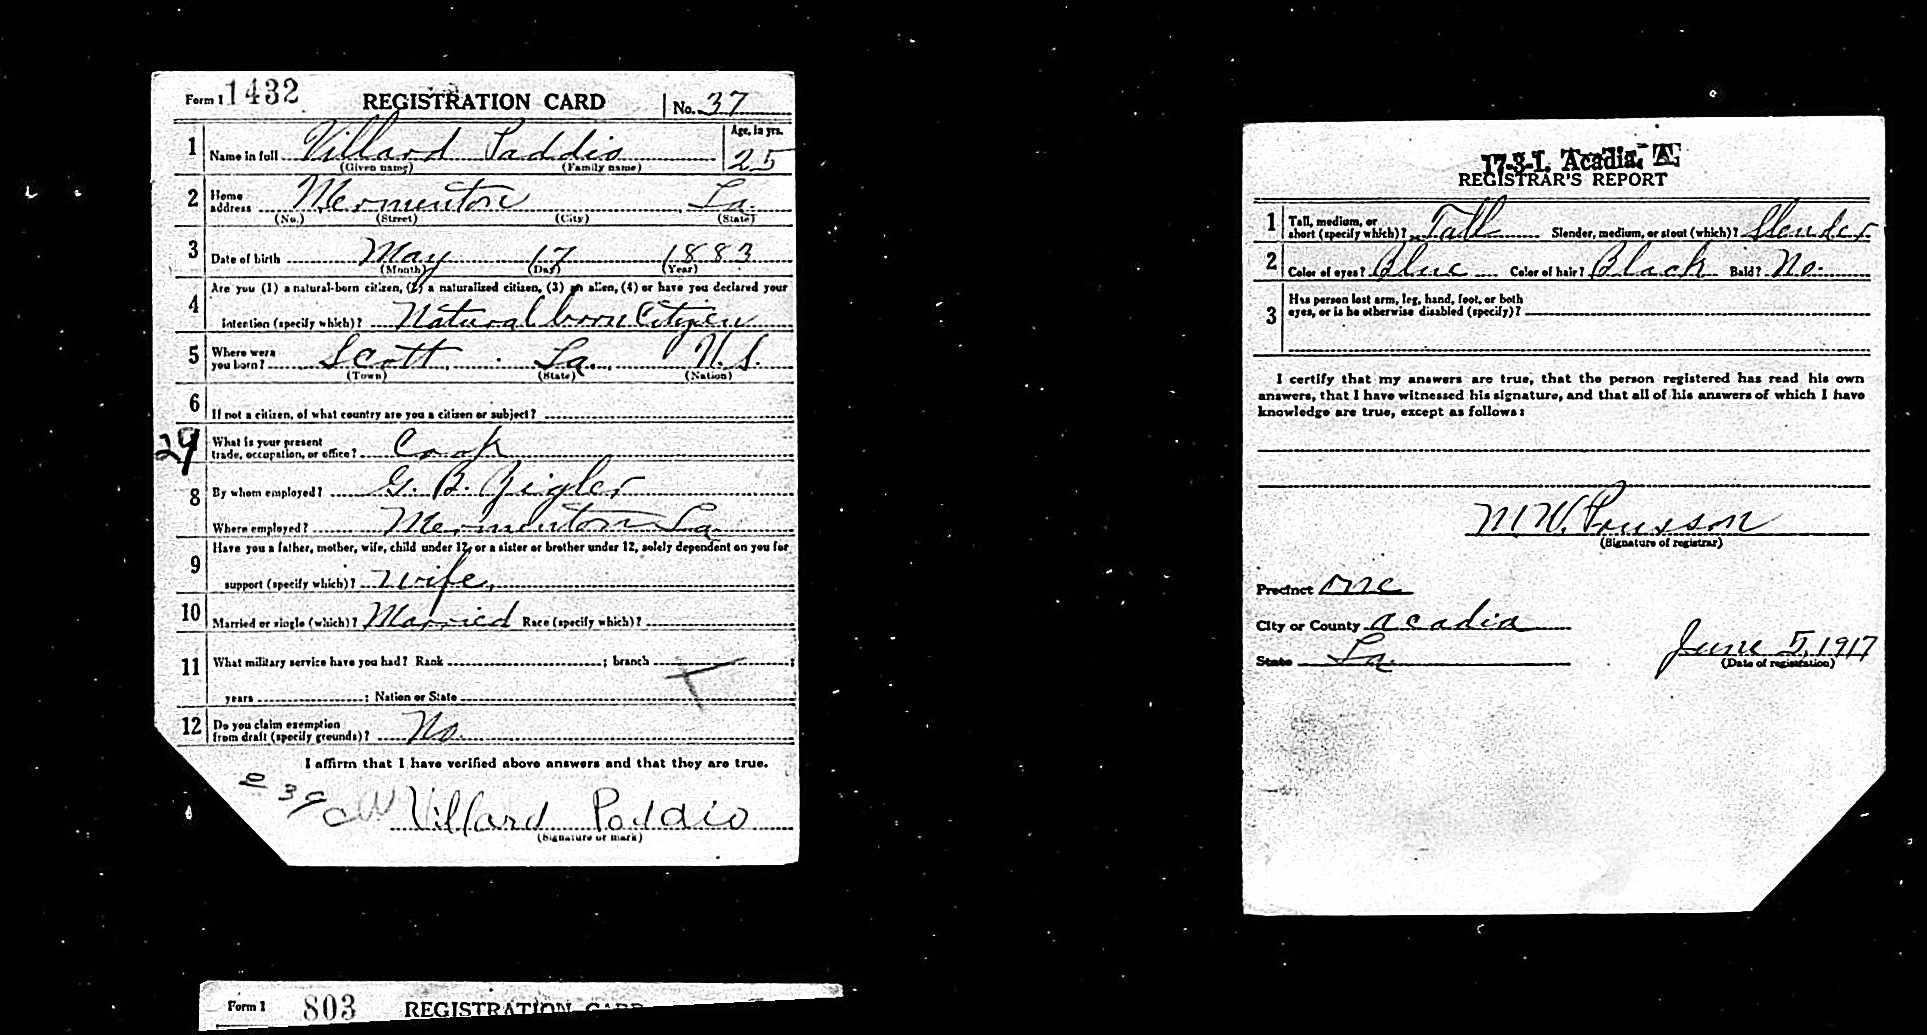 Form 1 1432 REGISTRATION CARD No. 37
1 Name in full Villard Paddio Age, in yrs. 25
(Given name) (Family name)
2 Home address Mermenton La.
(No.) (Street) (City) (State)
3 Date of birth May 17 1883
(Month) (Day) (Year)
4 Are you (1) a natural-born citizen, (2) a naturalized citizen, (3) an alien, (4) or have you declared your
intention (specify which)? Natural born Citizen
5 Where were you born? Scott La. U.S.
(Town) (State) (Nation)
6 If not a citizen, of what country are you a citizen or subject?
29 What is your present trade, occupation, or office? Cook
8 By whom employed? G. B. Zigler
Where employed? Mermenton La
9 Have you a father, mother, wife, child under 12, or a sister or brother under 12, solely dependent on you for
support (specify which)? Wife,
10 Married or single (which)? Married Race (specify which)?
11 What military service have you had? Rank ; branch ;
years ; Nation or State
12 Do you claim exemption from draft (specify grounds)? No.
I affirm that I have verified above answers and that they are true.
Villard Paddio
(Signature or mark)
Form 1 803 REGISTRATION CARD
17-3-1. Acadia. A
REGISTRAR'S REPORT
1 Tall, medium, or short (specify which)? Tall Slender, medium, or stout (which)? Slender
2 Color of eyes? Blue Color of hair? Black Bald? No.
3 Has person lost arm, leg, hand, foot, or both
eyes, or is he otherwise disabled (specify)?
I certify that my answers are true, that the person registered has read his own
answers, that I have witnessed his signature, and that all of his answers of which I have
knowledge are true, except as follows:
M W. Pousson
(Signature of registrar)
Precinct one
City or County Acadia
State La. June 5, 1917
(Date of registration)